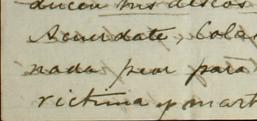 ducen mis deseos
Acuerdate, Cola
nada peor para
victima y mart